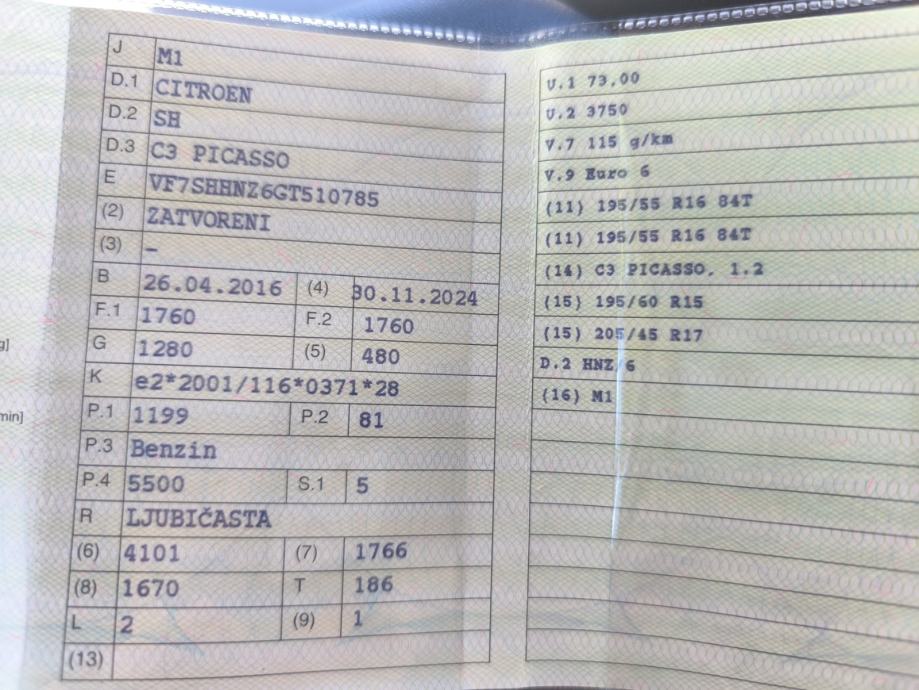 J M1
D.1 CITROEN
D.2 SH
D.3 C3 PICASSO
E VF7SHHNZ6GT510785
(2) ZATVORENI
(3) –
B 26.04.2016 (4) 30.11.2024
F.1 1760 F.2 1760
G 1280 (5) 480
K e2*2001/116*0371*28
P.1 1199 P.2 81
P.3 Benzin
P.4 5500 S.1 5
R LJUBIČASTA
(6) 4101 (7) 1766
(8) 1670 T 186
L 2 (9) 1
(13)
g]
min]
U.1 73,00
U.2 3750
V.7 115 g/km
V.9 Euro 6
(11) 195/55 R16 84T
(11) 195/55 R16 84T
(14) C3 PICASSO, 1.2
(15) 195/60 R15
(15) 205/45 R17
D.2 HNZ/6
(16) M1